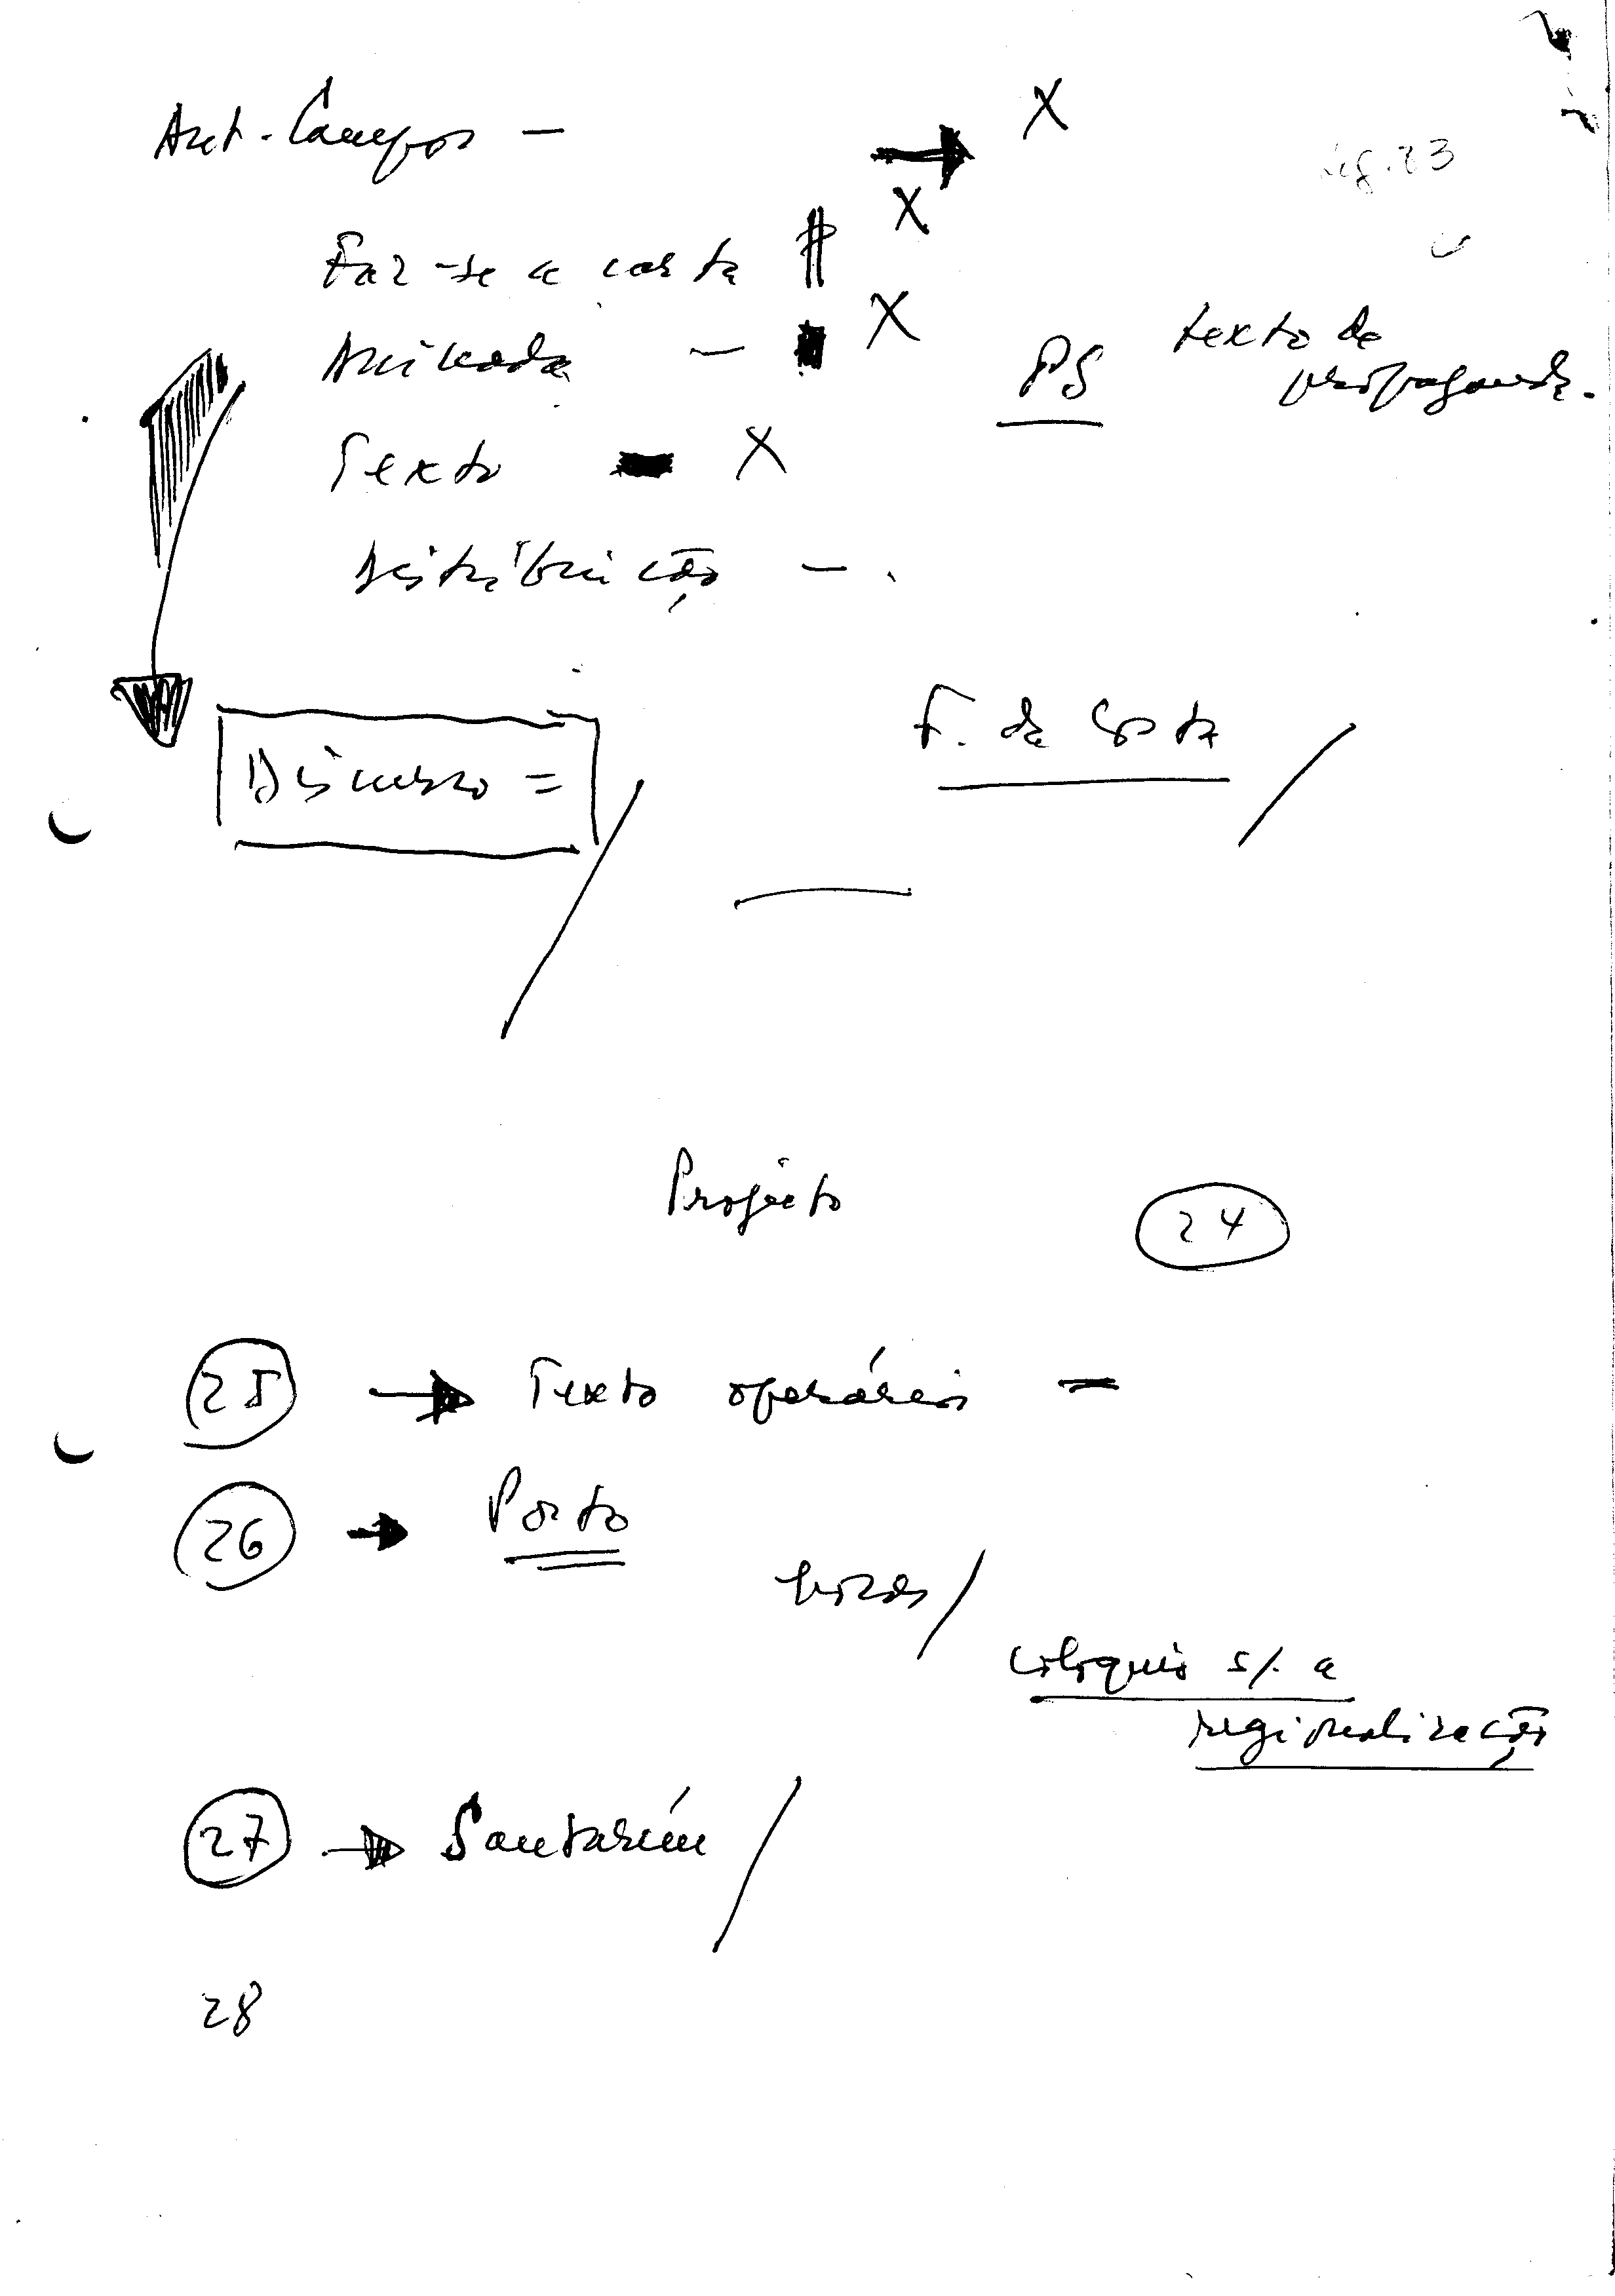 Ant. Campos — X
Faz-se a carta X
— X
PS texto de
propaganda.
Texto — X
Distribuição —
Discurso =
F. da Costa
Projecto
24
25 → Texto operário —
26 → Porto
horas /
colóquio s/. a
regionalização
27 → Santarém /
28